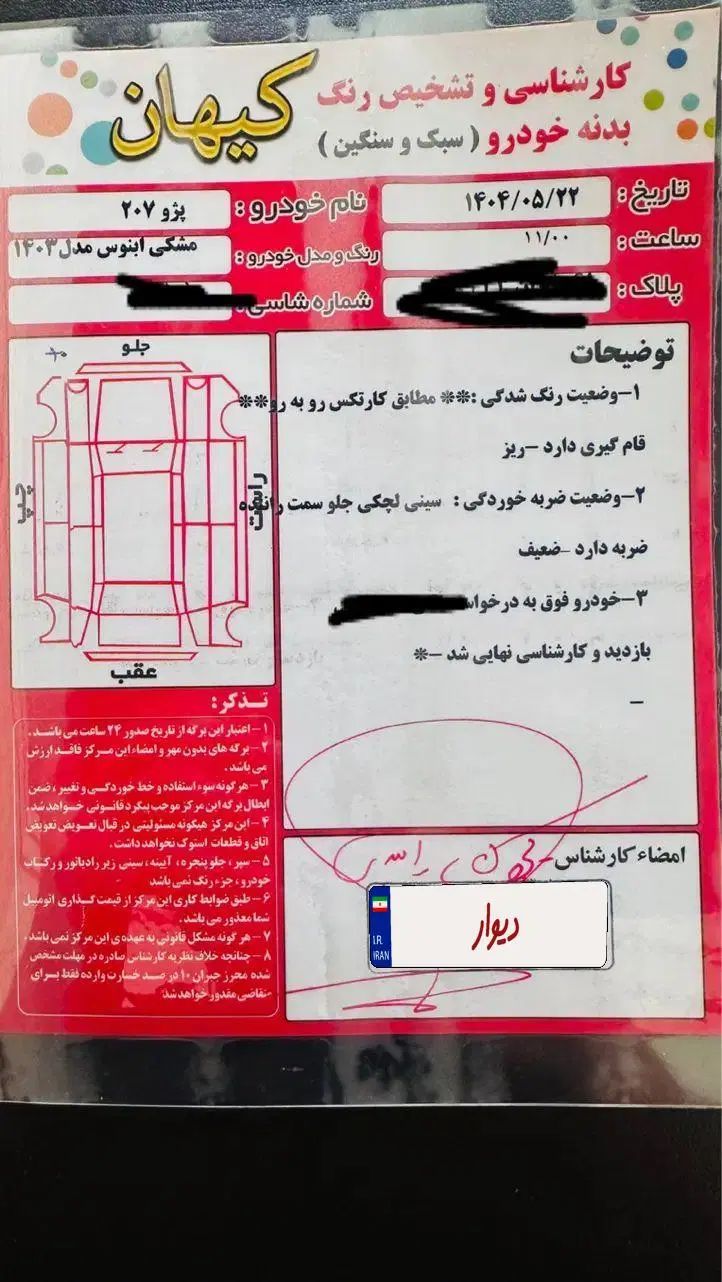 کارشناسی و تشخیص رنگ
بدنه خودرو ( سبک و سنگین )
کیهان
تاریخ : ۱۴۰۴/۰۵/۲۲
نام خودرو : پژو ۲۰۷
ساعت : ۱۱/۰۰
رنگ و مدل خودرو : مشکی ابنوس مدل ۱۴۰۳
پلاک :
شماره شاسی :
توضیحات
۱-وضعیت رنگ شدگی :** مطابق کارتکس رو به رو**
قام گیری دارد -ریز
۲-وضعیت ضربه خوردگی : سینی لچکی جلو سمت راننده
ضربه دارد -ضعیف
۳-خودرو فوق به درخواس
بازدید و کارشناسی نهایی شد -*
-
جلو
راست
چپ
عقب
تذکر :
۱- اعتبار این برگه از تاریخ صدور ۲۴ ساعت می باشد.
۲- برگه های بدون مهر و امضاء این مرکز فاقد ارزش
می باشد.
۳- هرگونه سوء استفاده و خط خوردگی و تغییر ، ضمن
ابطال برگه این مرکز موجب پیگرد قانونی خواهد شد.
۴- این مرکز هیگونه مسئولیتی در قبال تعویض تعویض
اتاق و قطعات استوک نخواهد داشت.
۵- سپر ، جلو پنجره ، آیینه ، سینی زیر رادیاتور و رکاب
خودرو ، جزء رنگ نمی باشد
۶- طبق ضوابط کاری این مرکز از قیمت گذاری اتومبیل
شما معذور می باشد.
۷- هر گونه مشکل قانونی به عهده ی این مرکز نمی باشد.
۸- چنانچه خلاف نظریه کارشناس صادره در مهلت مشخص
شده محرز جبران ۱۰ در صد خسارت وارده فقط برای
متقاضی مقدور خواهد شد
امضاء کارشناس -
I.R.
IRAN
دیوار